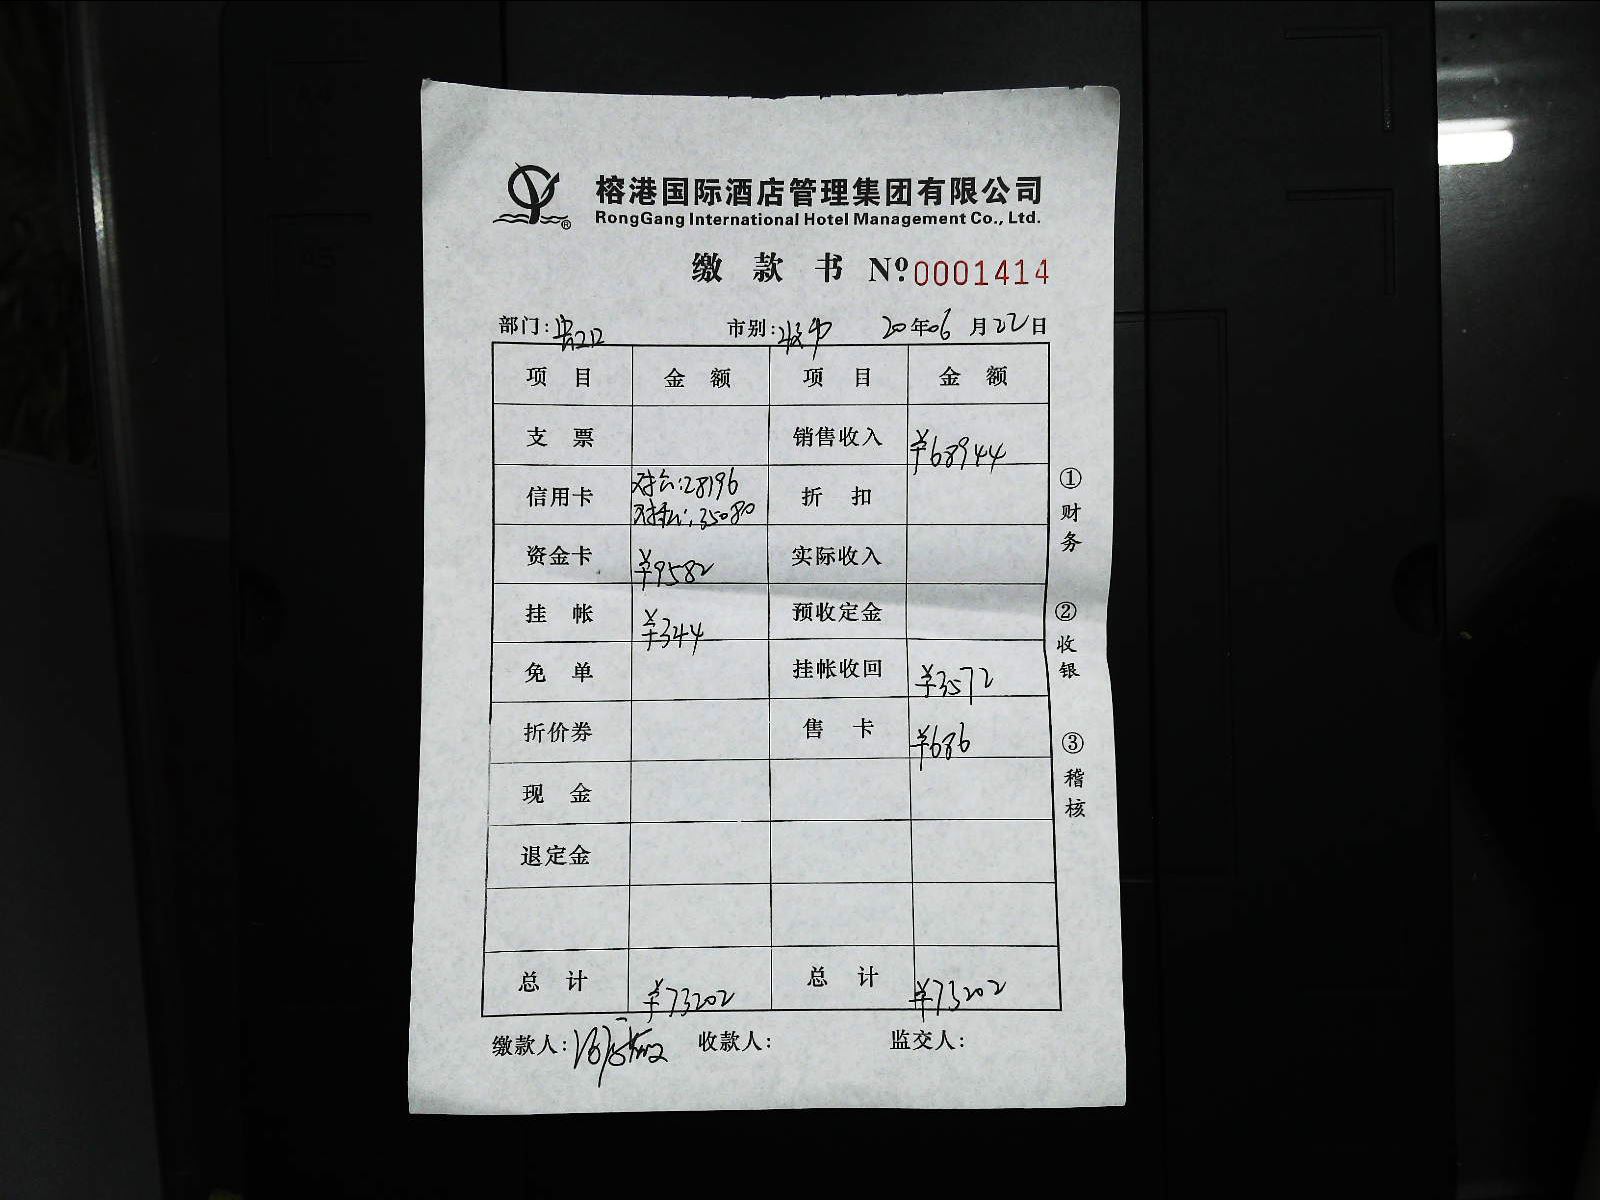 榕港国际酒店管理集团有限公司
RongGang International Hotel Management Co., Ltd.
缴款书 Nº 0001414
部门: 市别: 20年06月22日
项目 金额 项目 金额
支票 销售收入 ¥68944
信用卡 对公:28196 折扣
35080
资金卡 ¥9582 实际收入
挂帐 ¥344 预收定金
免单 挂帐收回 ¥3572
折价券 售卡 ¥686
现金
退定金
总计 ¥73202 总计 ¥73202
缴款人: 收款人: 监交人:
①财务
②收银
③稽核
A4
A5